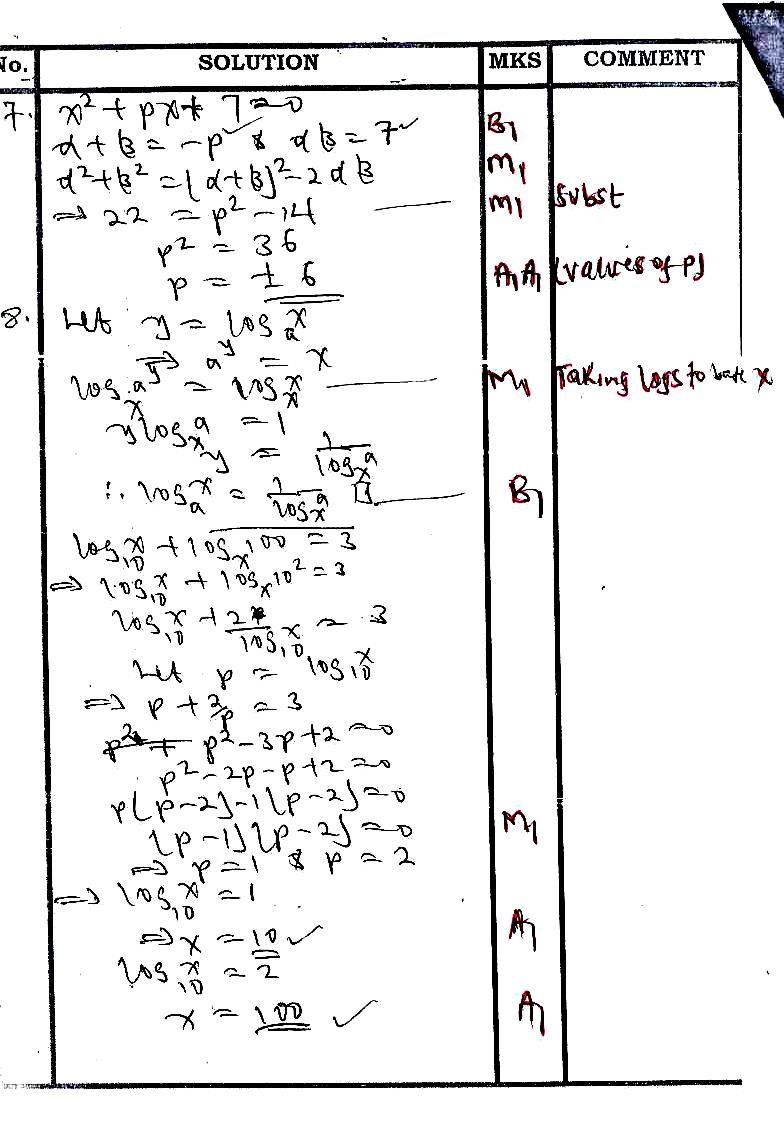 No. SOLUTION MKS COMMENT
7. x² + px + 7 = 0
α + β = -p ✓ & αβ = 7 ✓ B1
α² + β² = (α+β)² - 2αβ M1
⇒ 22 = p² - 14 M1 Subst
p² = 36
p = ± 6 A1 A1 (values of p)
8. Let y = logₐx
⇒ a^y = x
logₓa^y = logₓx M1 Taking logs to base x
y logₓa = 1
y = 1/logₓa
∴ logₐx = 1/logₓa B1
log₁₀x + logₓ100 = 3
⇒ log₁₀x + logₓ10² = 3
log₁₀x + 2/log₁₀x = 3
Let p = log₁₀x
⇒ p + 2/p = 3
p² - 3p + 2 = 0
p² - 2p - p + 2 = 0
p(p-2) - 1(p-2) = 0
(p-1)(p-2) = 0 M1
⇒ p = 1 & p = 2
⇒ log₁₀x = 1
⇒ x = 10 ✓ A1
log₁₀x = 2
x = 100 ✓ A1